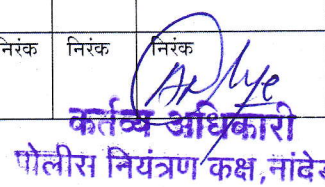 निरंक निरंक निरंक
कर्तव्य अधिकारी
पोलीस नियंत्रण कक्ष,